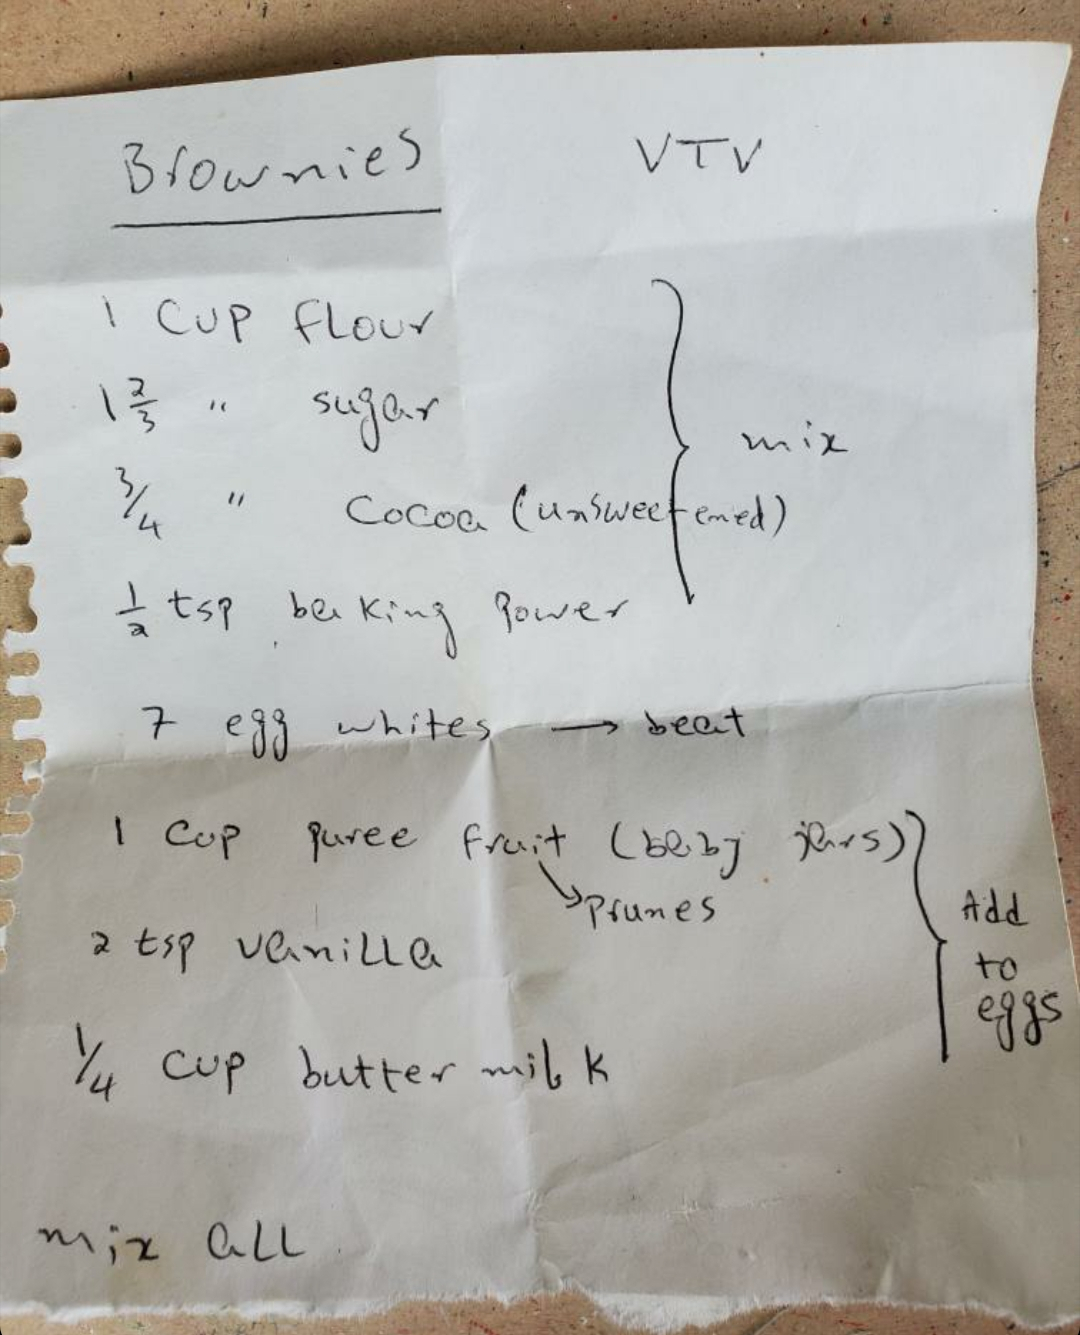 Brownies VTV
1 Cup flour
1 2/3 " sugar
3/4 " Cocoa (unsweetened)
mix
1/2 tsp baking power
7 egg whites → beat
1 Cup puree fruit (baby jars)
→ Prunes
2 tsp vanilla
1/4 Cup butter milk
Add
to
eggs
mix all